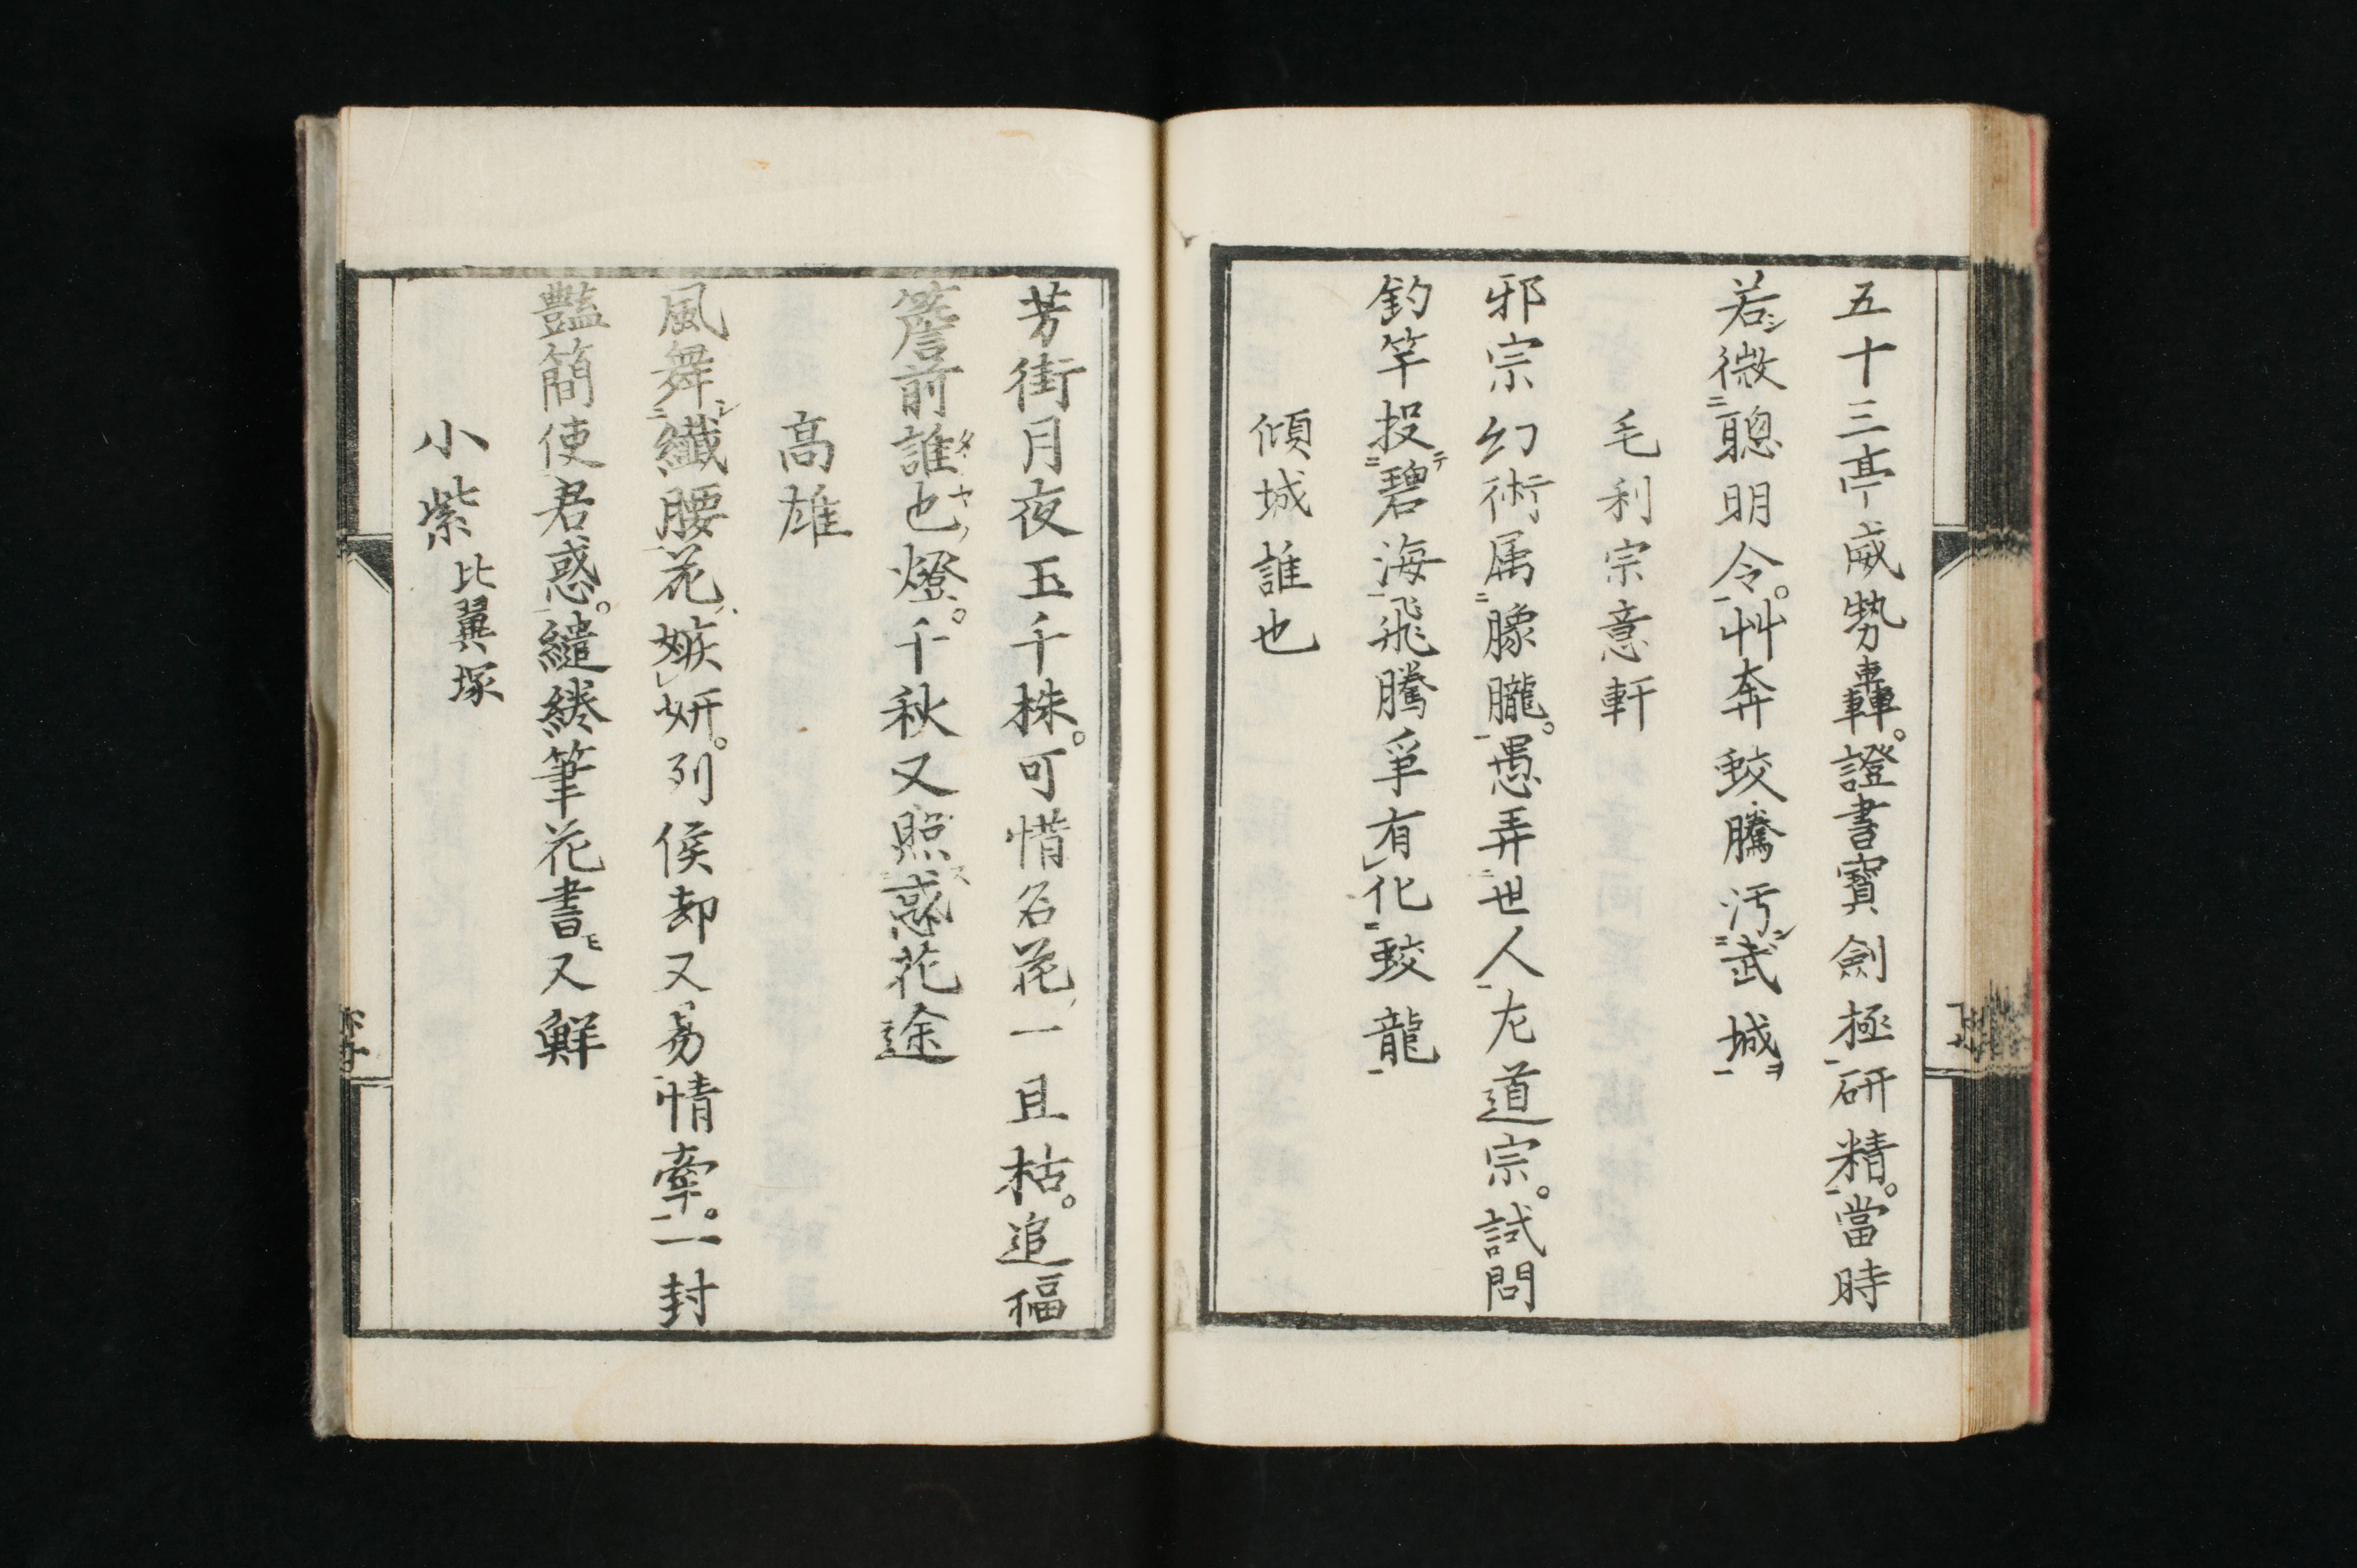 五十三亭威勢轟。證書寶劍極研精。當時
若微聰明令。艸奔蛟騰汚武城
毛利宗意軒
邪宗幻術属朦朧。愚弄世人左道宗。試問
釣竿投碧海飛騰爭有化蛟龍
傾城誰也
芳街月夜玉千株。可惜名花一旦枯。追福
簷前誰也燈。千秋又照惑花途
高雄
風舞纖腰花嫉妍。列侯却又易情牽。一封
豔簡使君惑。繾綣筆花書又鮮
小紫 比翼塚